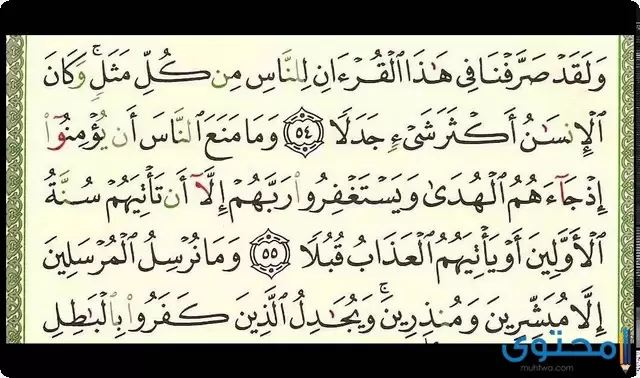 وَلَقَدۡ صَرَّفۡنَا فِي هَٰذَا ٱلۡقُرۡءَانِ لِلنَّاسِ مِن كُلِّ مَثَلٖۚ وَكَانَ
ٱلۡإِنسَٰنُ أَكۡثَرَ شَيۡءٖ جَدَلٗا ٥٤ وَمَا مَنَعَ ٱلنَّاسَ أَن يُؤۡمِنُوٓاْ
إِذۡ جَآءَهُمُ ٱلۡهُدَىٰ وَيَسۡتَغۡفِرُواْ رَبَّهُمۡ إِلَّآ أَن تَأۡتِيَهُمۡ سُنَّةُ
ٱلۡأَوَّلِينَ أَوۡ يَأۡتِيَهُمُ ٱلۡعَذَابُ قُبُلٗا ٥٥ وَمَا نُرۡسِلُ ٱلۡمُرۡسَلِينَ
إِلَّا مُبَشِّرِينَ وَمُنذِرِينَۚ وَيُجَٰدِلُ ٱلَّذِينَ كَفَرُواْ بِٱلۡبَٰطِلِ
محتوى
muhtwa.com